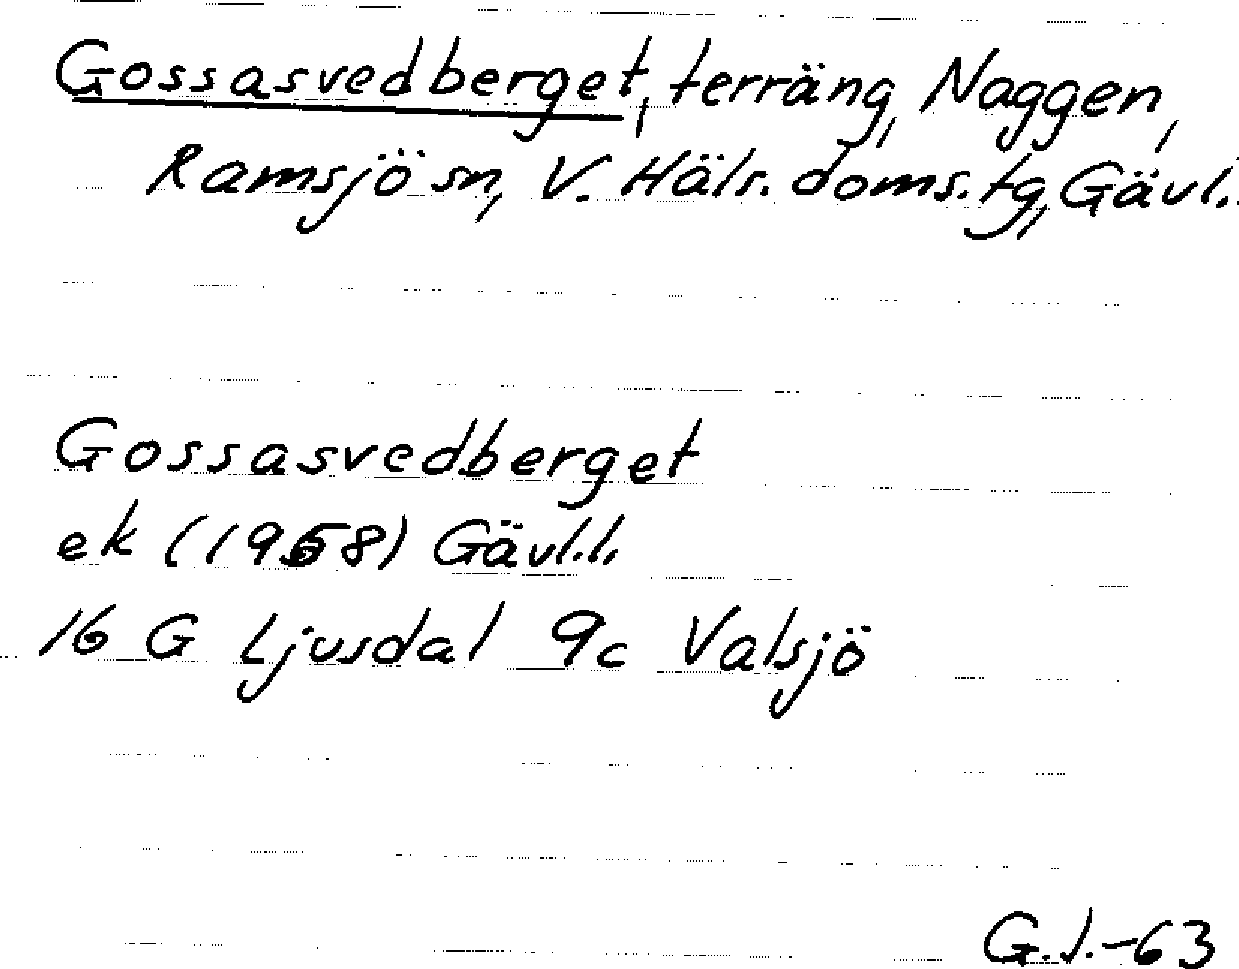 Gossasvedberget, terräng, Naggen,
Ramsjö sn, V. Häls. doms. tg, Gävl.
Gossasvedberget
ek (1958) Gävl.l.
16 G Ljusdal 9c Valsjö
G.l.-63